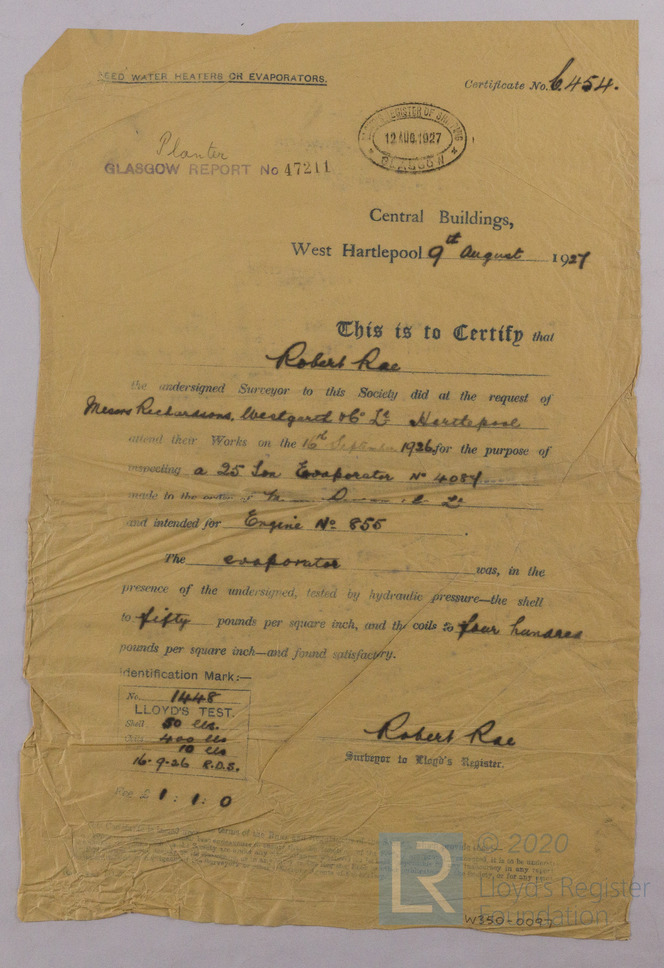 FEED WATER HEATERS OR EVAPORATORS.
Certificate No. 6454.
REGISTER OF
12 AUG. 1927
GLASGOW
Planter
GLASGOW REPORT No 47211
Central Buildings,
West Hartlepool 9th August 1927
This is to Certify that
Robert Rae
the undersigned Surveyor to this Society did at the request of
Messrs Richardsons, Westgarth & Co Ld Hartlepool
attend their Works on the 16th September 1926 for the purpose of
inspecting a 25 Ton Evaporator No 4084
made to the order of
and intended for Engine No 855
The evaporator was, in the
presence of the undersigned, tested by hydraulic pressure—the shell
to fifty pounds per square inch, and the coils to four hundred
pounds per square inch—and found satisfactory.
Identification Mark:—
No. 1448
LLOYD'S TEST.
Shell 50 lbs.
Coils 400 lbs
10 lbs
16-9-26 R.D.S.
Robert Rae
Surveyor to Lloyd's Register.
Fee £ 1 : 1 : 0
terms of the
LR
© 2020
Lloyd's Register
Foundation
W350-0097